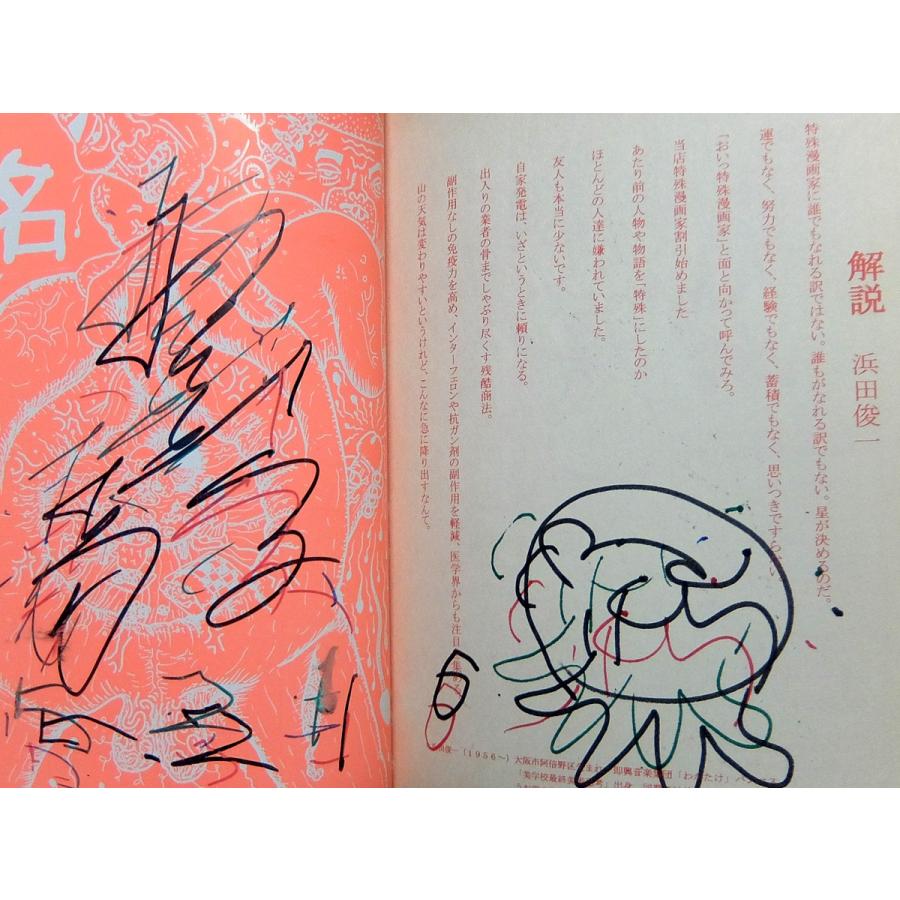 名
解説 浜田俊一
特殊漫画家に誰でもなれる訳ではない。誰もがなれる訳でもない。星が決めるのだ。
運でもなく、努力でもなく、経験でもなく、蓄積でもなく、思いつきですらない。
「おいっ特殊漫画家」と面と向かって呼んでみろ。
当店特殊漫画家割引始めました
あたり前の人物や物語を「特殊」にしたのか
ほとんどの人達に嫌われていました。
友人も本当に少ないです。
自家発電は、いざというときに頼りになる。
出入りの業者の骨までしゃぶり尽くす残酷商法。
副作用なしの免疫力を高め、インターフェロンや抗ガン剤の副作用を軽減、医学界からも注目
山の天気は変わりやすいというけれど、こんなに急に降り出すなんて。
田俊一（1956〜）大阪市阿倍野区生まれ 即興音楽集団「わかたけ」
「美学校最終美 号」出身